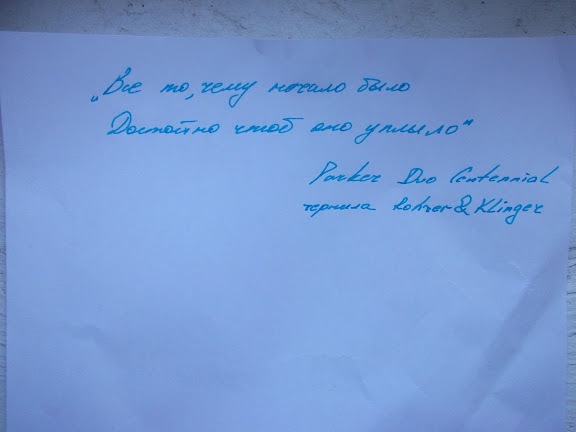 „Все то, чему начало было
Достойно чтоб оно уплыло"
Parker Duo Centennial
чернила Rohrer & Klinger